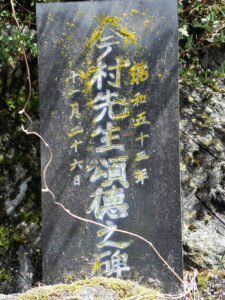 昭和五十三年
今村先生頌德之碑
十一月二十六日